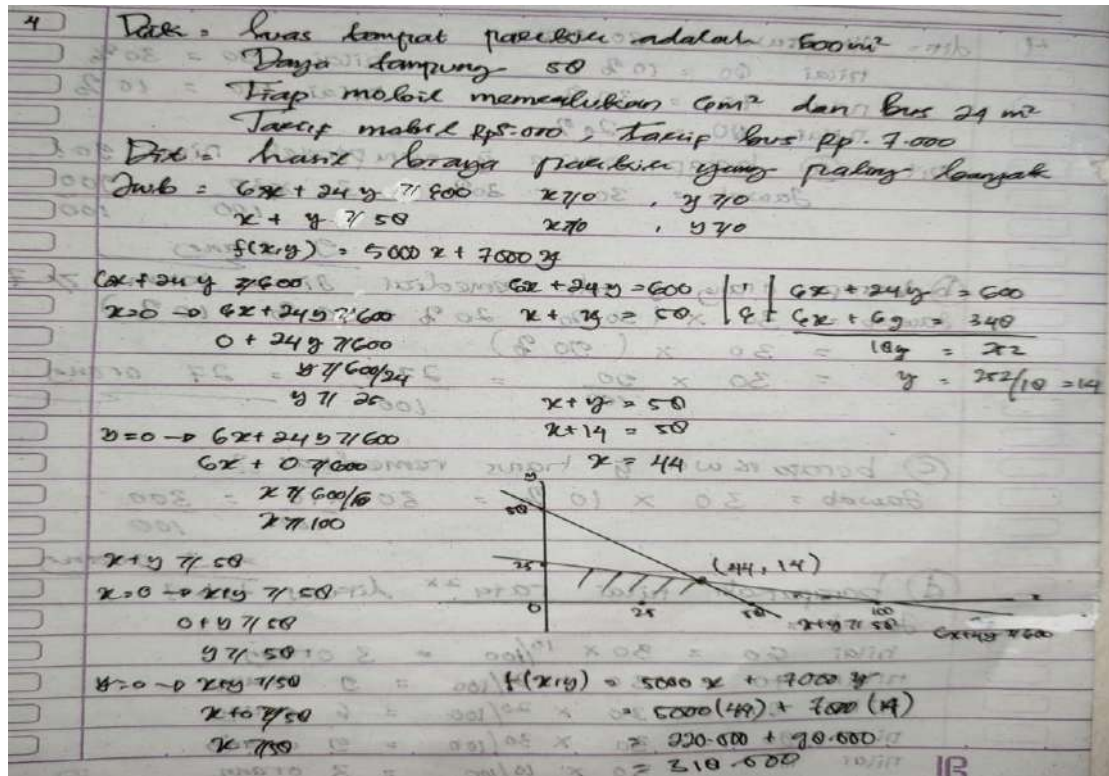 4 Dik = luas tempat parkir adalah 600 m²
Daya tampung 58
Tiap mobil memerlukan 6m² dan bus 24 m²
Tarif mobil Rp5.000, tarif bus Rp. 7.000
Dit = hasil biaya parkir yang paling banyak
Jwb = 6x + 24 y ≥ 600 x ≥ 0 , y ≥ 0
x + y ≥ 58 x ≥ 0 , y ≥ 0
f(x,y) = 5000 x + 7000 y
6x + 24 y ≥ 600
x=0 → 6x + 24 y ≥ 600
0 + 24 y ≥ 600
y ≥ 600/24
y ≥ 25
y=0 → 6x + 24 y ≥ 600
6x + 0 ≥ 600
x ≥ 600/6
x ≥ 100
x+y ≥ 58
x=0 → x+y ≥ 58
0+y ≥ 58
y ≥ 58
y=0 → x+y ≥ 58
x+0 ≥ 58
x ≥ 58
6x + 24 y = 600 | 1 | 6x + 24y = 600
x + y = 58 | 6 | 6x + 6y = 348
18y = 252
y = 252/18 = 14
x + y = 58
x + 14 = 58
x = 44
y
58
25 (44, 14)
0 25 58 100 x
x+y ≥ 58 6x+4y ≥ 600
f(x,y) = 5000 x + 7000 y
= 5000 (44) + 7000 (14)
= 220.000 + 98.000
= 318.000